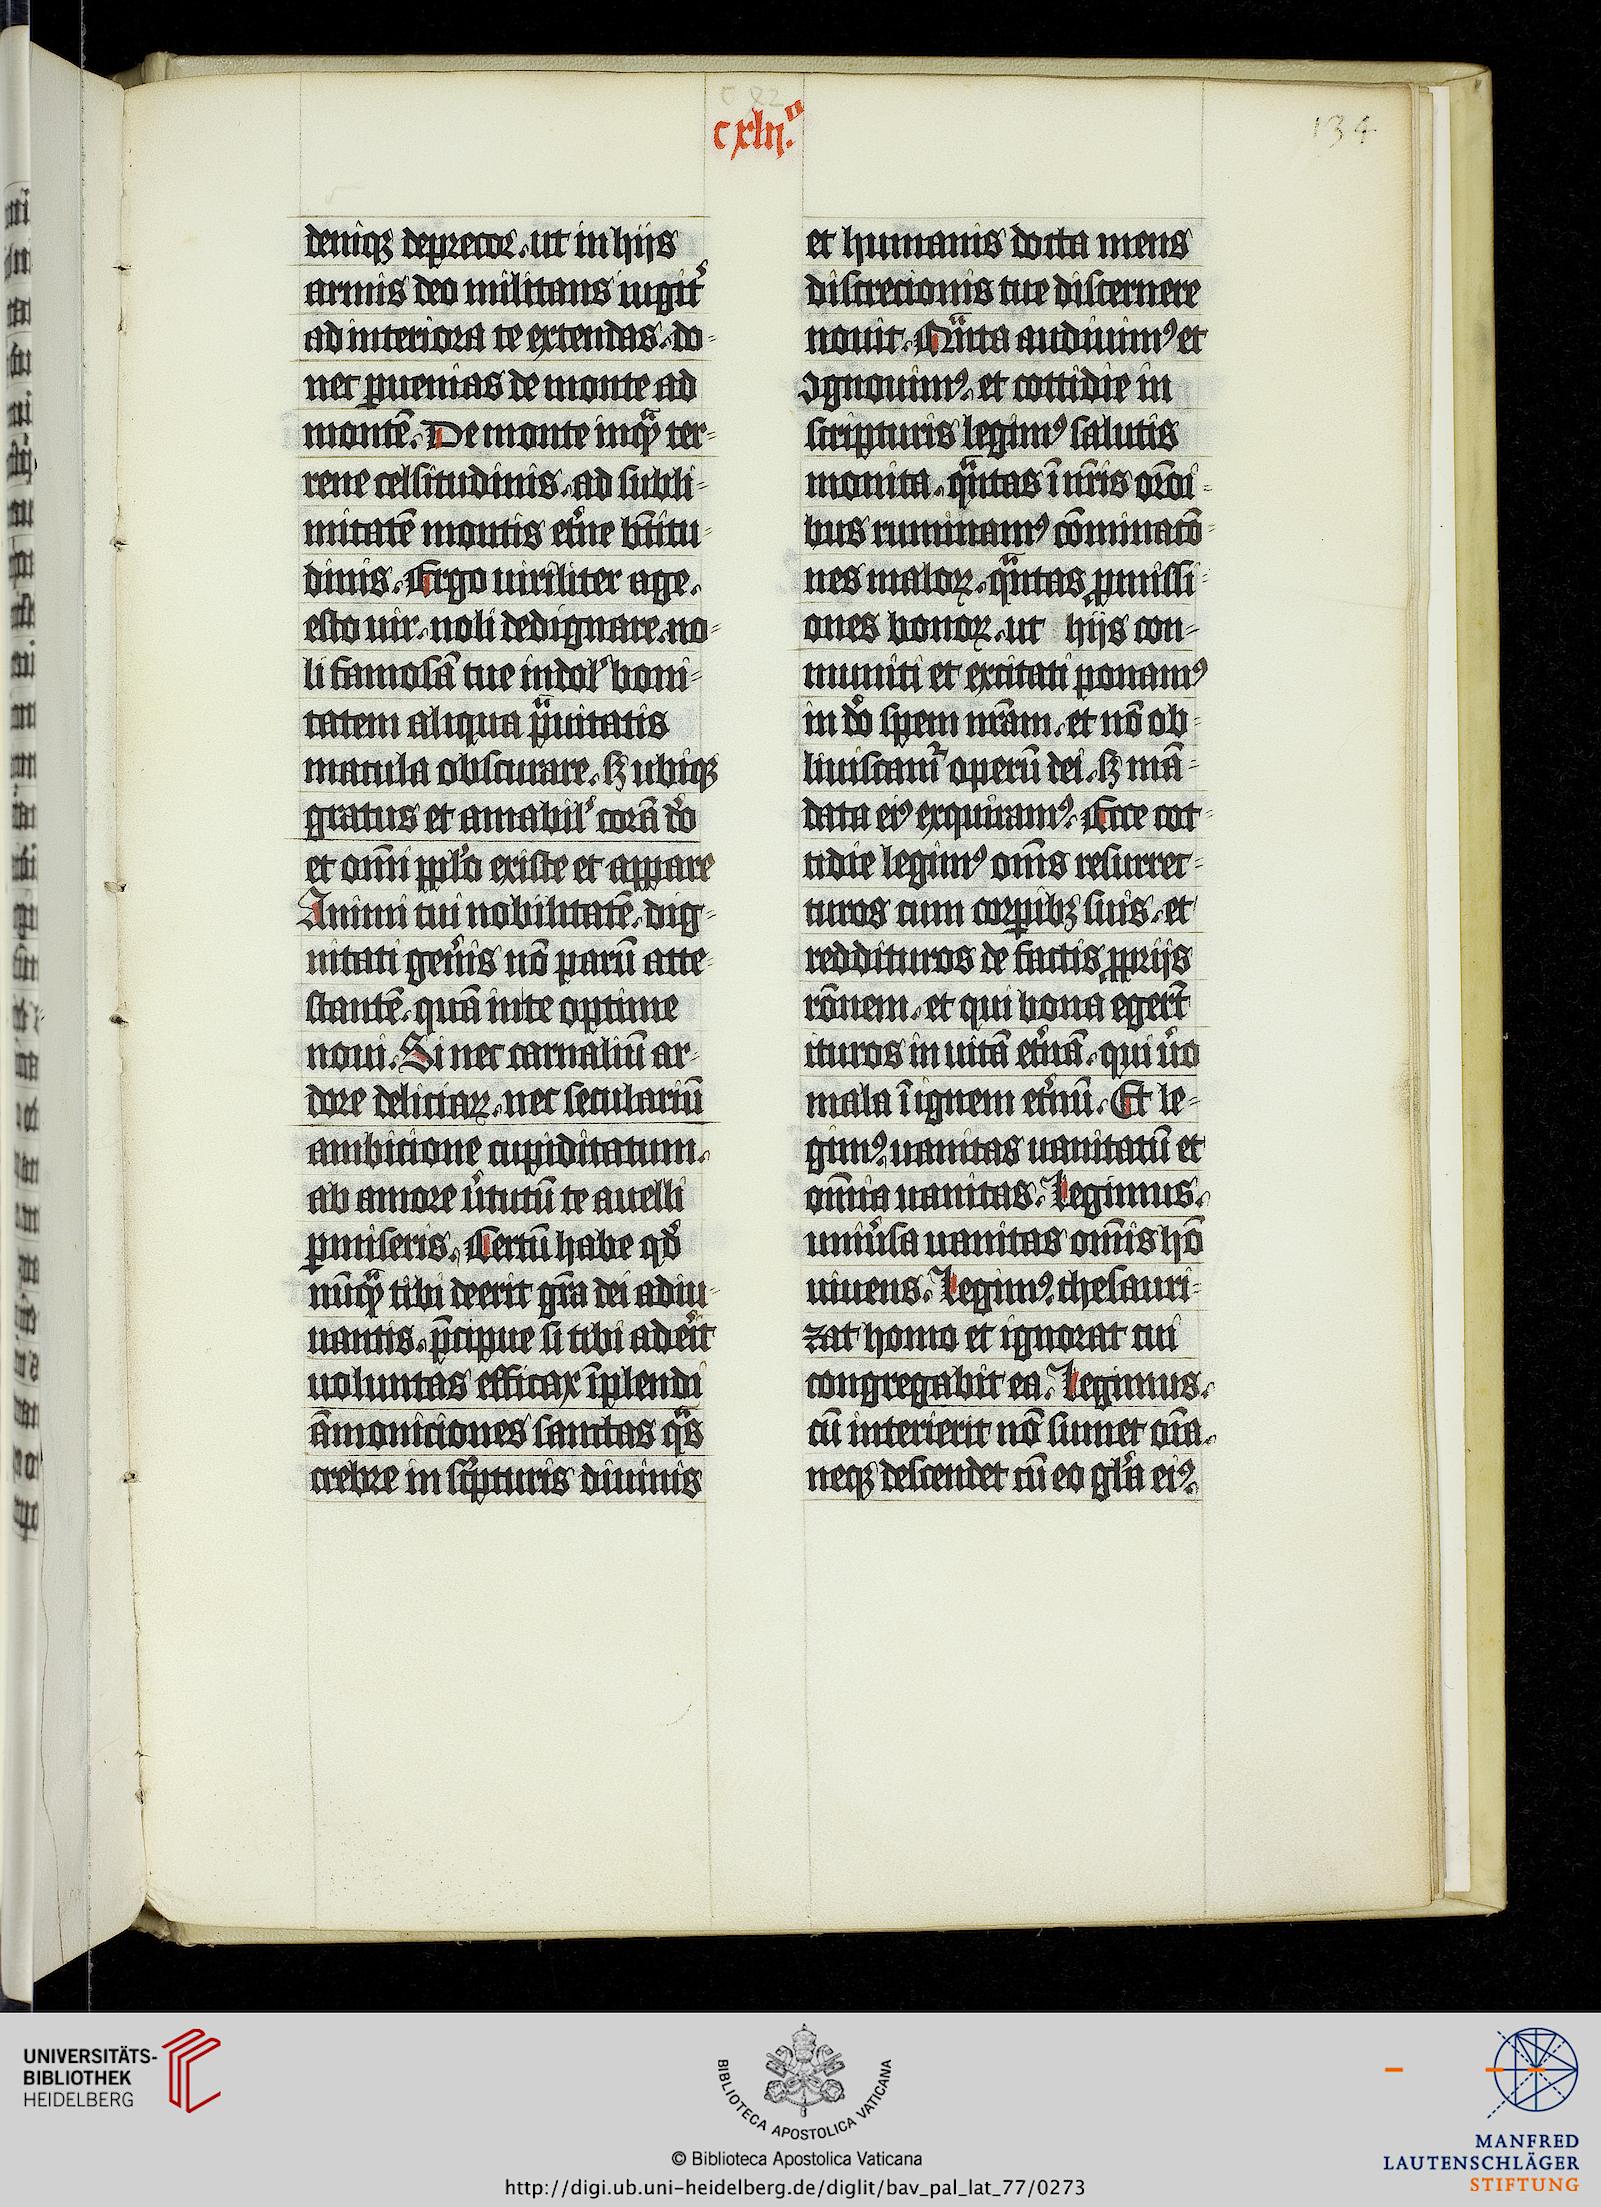 cxlij.º
134
deniqꝫ deprecor. ut in hijs
armis deo militans iugit᷒
ad interiora te extendas. do⸗
nec ꝑuenias de monte ad
montē. De monte inqͣ ter⸗
rene celsitudinis. ad subli⸗
mitatē montis et᷒ne bt̄itu⸗
dinis. Ergo uiriliter age.
esto uir. noli dedignare. no⸗
li famosā tue indol᷒ boni⸗
tatem aliqua pͣuitatis
macula obscurare. sꝫ ubiqꝫ
gratus et amabil᷒ corā do᷒
et om̄i ppl᷒o existe et appare
Animi tui nobilitatē. dig⸗
nitati gen᷒is nō parū atte⸗
stantē. quā in te optime
noui. Si nec carnaliū ar⸗
dore deliciaꝝ. nec seculariū
ambitione cupiditatum.
ab amore u᷒tutū te auelli
ꝑmiseris. Certū habe qd᷒
nūqͣ tibi deerit gr̄a dei adiu⸗
uantis. p̄cipue si tibi aderit
uoluntas efficax īplendi
āmoniciones sanctas qͣs
crebre in sc᷒pturis diuinis
et humanis docta mens
discrecionis tue discernere
nouit. Qͣnta audiuimꝰ et
ꝯgnouimꝰ. et cottidie in
scripturis legimꝰ salutis
monita. qͣntas ī nr̄is ordi⸗
bus ruminamꝰ cōminacō⸗
nes maloꝝ. qͣntas ꝓmissi⸗
ones bonoꝝ. ut hijs con⸗
muniti et excitati ponamꝰ
in do᷒ spem nr̄am. et nō ob⸗
liuiscam᷒ operū dei. sꝫ mā⸗
data eiꝰ exquiramꝰ. Ecce cot⸗
tidie legimꝰ om̄s resurrec⸗
turos cum corꝑibꝫ suis. et
reddituros de factis ꝓprijs
rōnem. et qui bona egert̄
ituros in uitā et᷒nā. qui u᷒o
mala ī ignem et᷒nū. Et le⸗
gimꝰ. uanitas uanitatū et
om̄ia uanitas. Legimus.
uniu᷒sa uanitas om̄is hō
uiuens. Legimꝰ. thesauri⸗
zat homo et ignorat cui
congregabit ea. Legimus.
cū interierit nō sumet oīa.
neqꝫ descendet cū eo gl᷒a eiꝰ.
UNIVERSITÄTS-
BIBLIOTHEK
HEIDELBERG
BIBLIOTECA APOSTOLICA VATICANA
© Biblioteca Apostolica Vaticana
http://digi.ub.uni-heidelberg.de/diglit/bav_pal_lat_77/0273
MANFRED
LAUTENSCHLÄGER
STIFTUNG